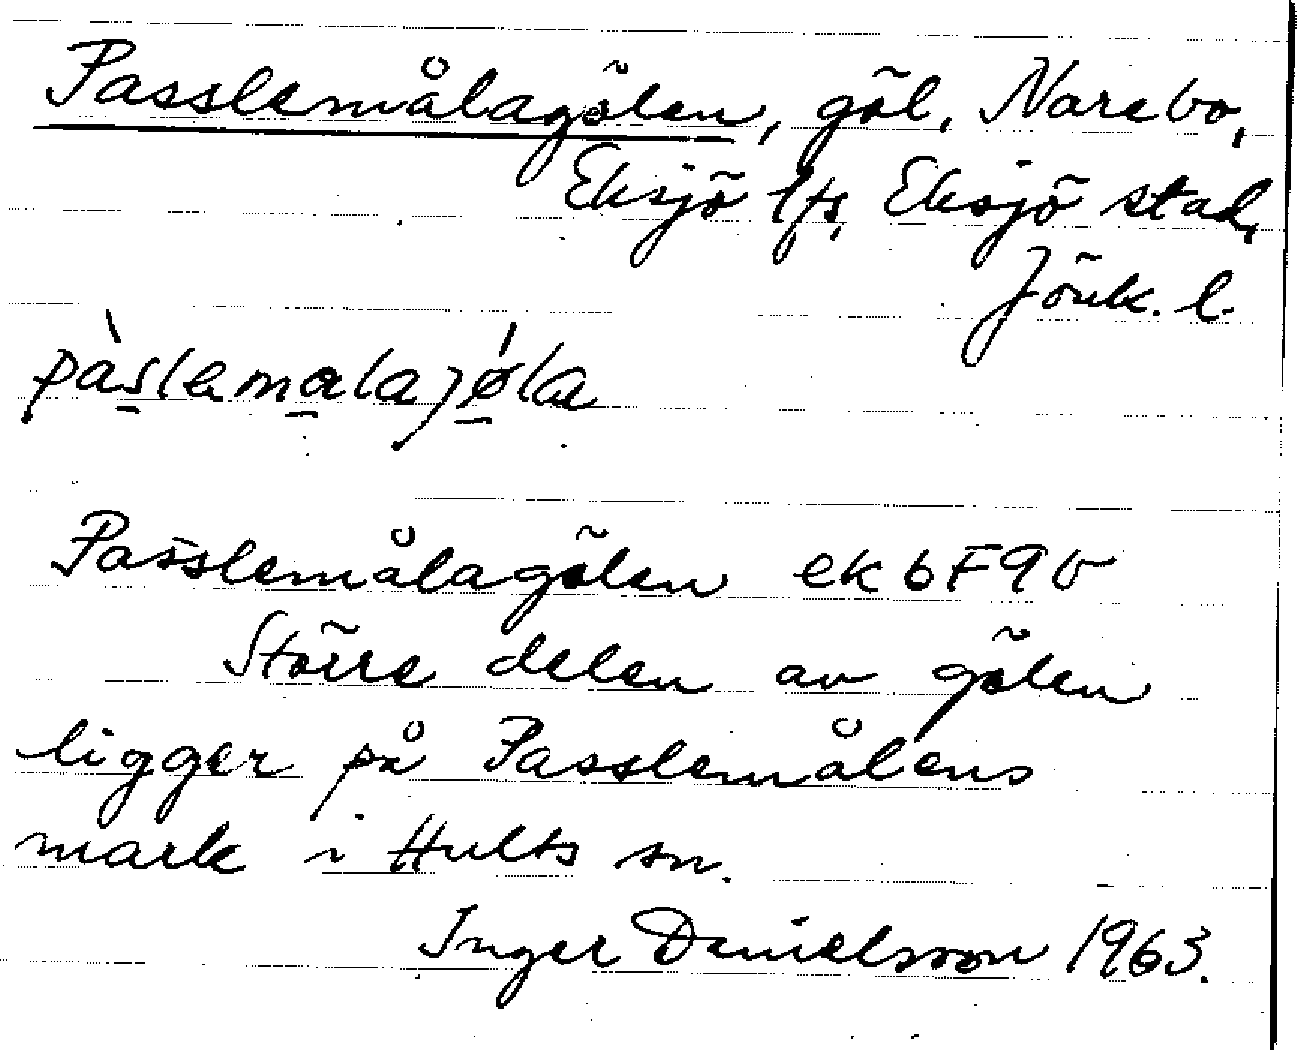 Passlemålagölen, göl, Narebo,
Eksjö lfs, Eksjö stad,
Jönk. l.
pàslamalajǿla
Passlemålagölen ek 6F9b
Större delen av gölen
ligger på Passlemålens
mark i Hults sn.
Inger Danielsson 1963.